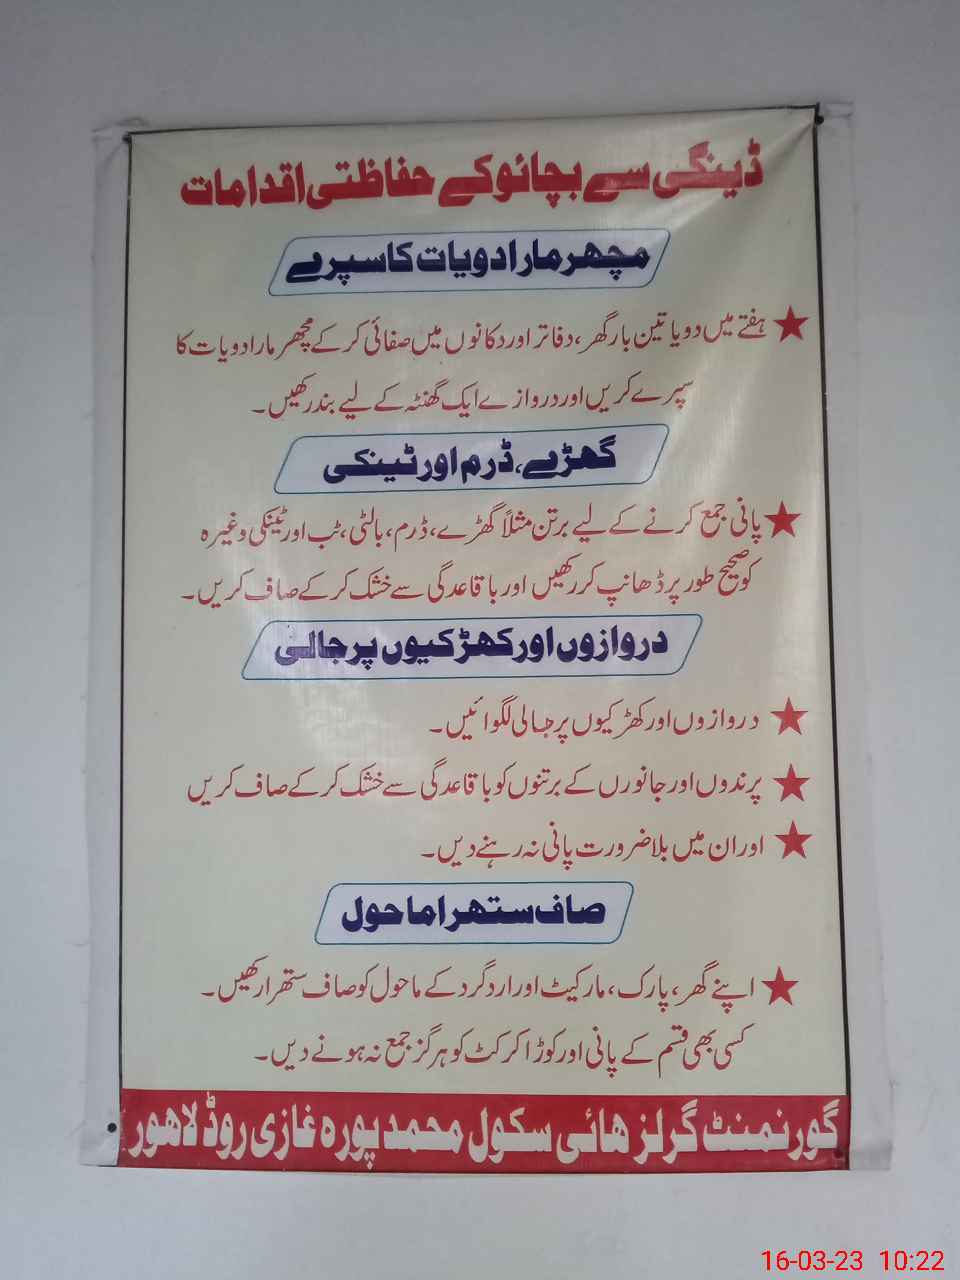 ڈینگی سے بچائو کے حفاظتی اقدامات
مچھر مار ادویات کا سپرے
ہفتے میں دو یا تین بار گھر، دفاتر اور دکانوں میں صفائی کر کے مچھر مار ادویات کا
سپرے کریں اور دروازے ایک گھنٹہ کے لیے بند رکھیں۔
گھڑے، ڈرم اور ٹینکی
پانی جمع کرنے کے لیے برتن مثلاً گھڑے، ڈرم، بالٹی، ٹب اور ٹینکی وغیرہ
کو صحیح طور پر ڈھانپ کر رکھیں اور باقاعدگی سے خشک کر کے صاف کریں۔
دروازوں اور کھڑکیوں پر جالی
دروازوں اور کھڑکیوں پر جالی لگوائیں۔
پرندوں اور جانورں کے برتنوں کو باقاعدگی سے خشک کر کے صاف کریں
اور ان میں بلا ضرورت پانی نہ رہنے دیں۔
صاف ستھرا ماحول
اپنے گھر، پارک، مارکیٹ اور ارد گرد کے ماحول کو صاف ستھرا رکھیں۔
کسی بھی قسم کے پانی اور کوڑا کرکٹ کو ہرگز جمع نہ ہونے دیں۔
گورنمنٹ گرلز ھائی سکول محمد پورہ غازی روڈ لاھور
16-03-23 10:22